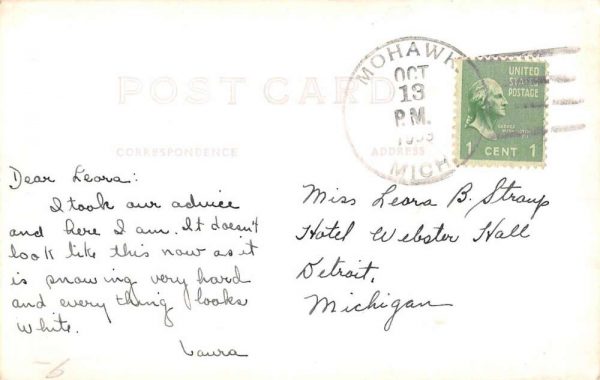 MOHAWK
OCT
13
P.M.
MICH
UNITED
STATES
POSTAGE
GEORGE WASHINGTON
1 CENT 1
POST CARD
CORRESPONDENCE
ADDRESS
Dear Leora:
I took our advice
and here I am. It doesn't
look like this now as it
is snowing very hard
and every thing looks
white.
Laura
Miss Leora B. Straup
Hotel Webster Hall
Detroit,
Michigan
-6